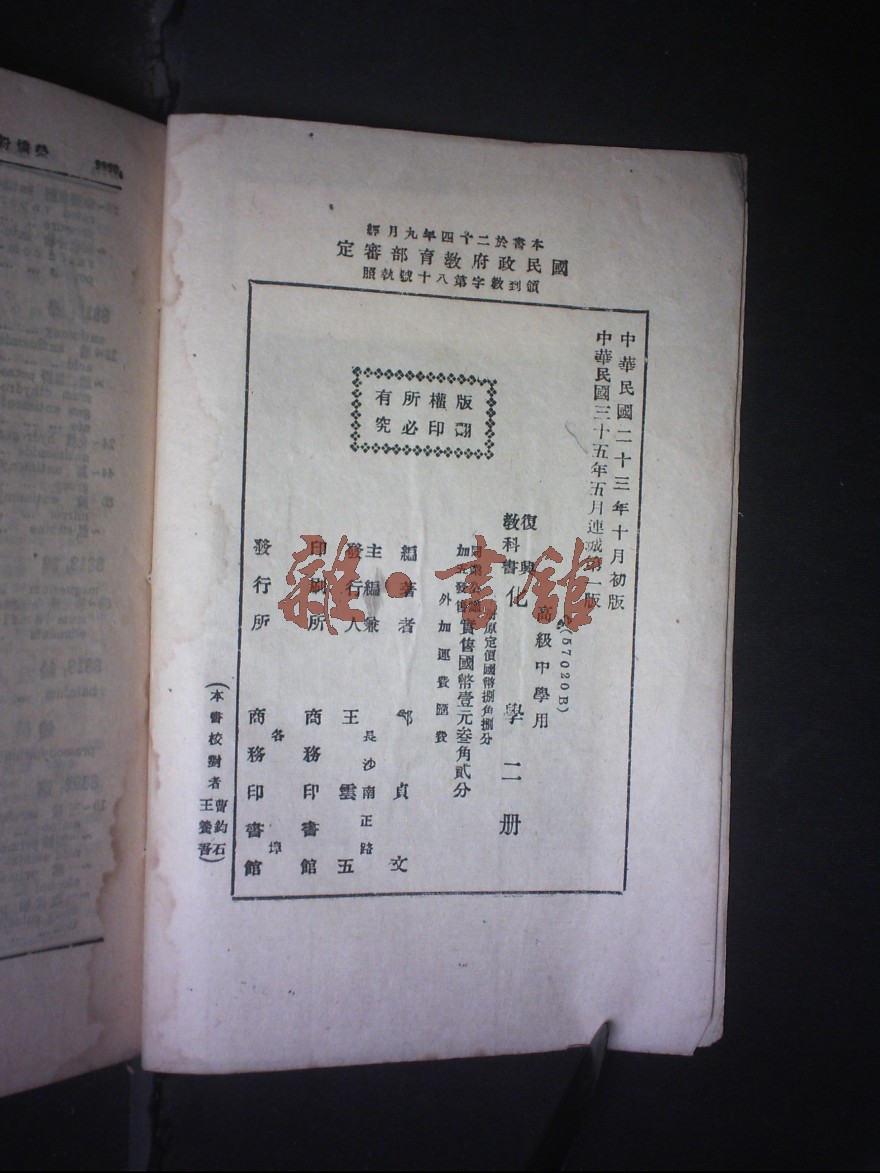 本書於二十四年九月經
國民政府教育部審定
領到教字第八十號執照
中華民國二十三年十月初版
中華民國三十五年五月連城第一版
版權所有
翻印必究
(57020B)
高級中學用
復興
教科書
化學二册
原定價國幣捌角捌分
加五發售實售國幣壹元叁角貳分
外加運費匯費
編著者 鄭貞文
主編兼
發行人 王雲五
長沙南正路
印刷所 商務印書館
發行所 商務印書館
各埠
(本書校對者
曹鈞石
王養吾)
雜·書館